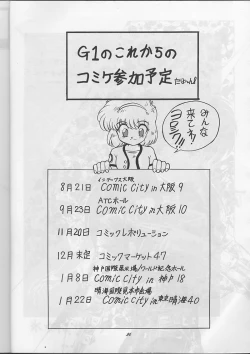 G1のこれからの
コミケ参加予定
だよ〜ん!
みんな
来てネ!
ヨロシク!!
インテックス大阪
8月21日 Comic City in 大阪 9
ATCホール
9月23日 Comic City in 大阪 10
11月20日 コミックレボリューション
12月末定 コミックマーケット47
神戸国際展示場/ワールド記念ホール
1月8日 Comic City in 神戸 18
晴海国際見本市会場
1月22日 Comic City in 東京晴海 40